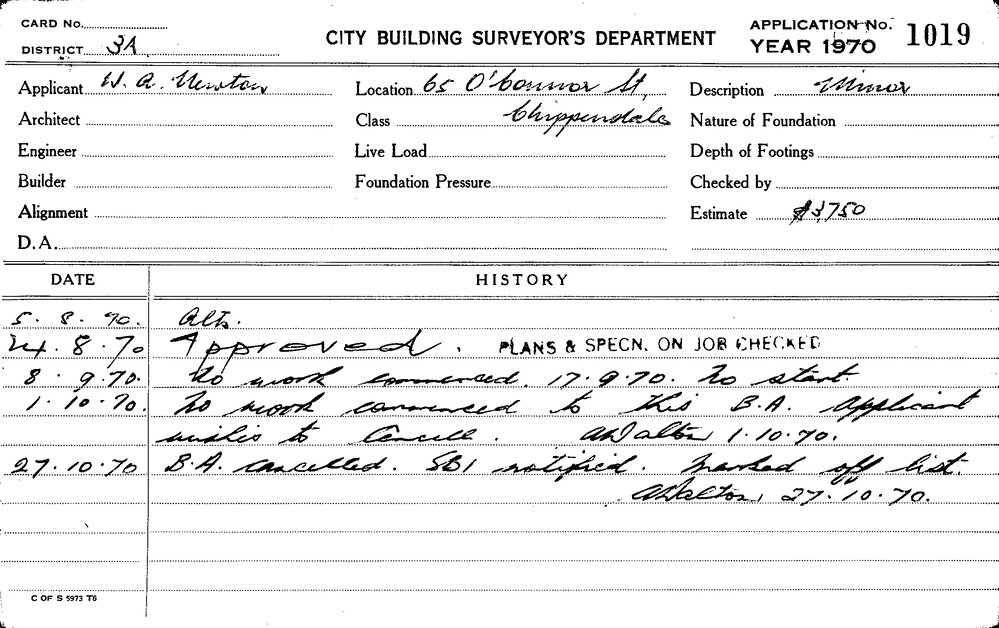 CARD No.
DISTRICT 3A
CITY BUILDING SURVEYOR'S DEPARTMENT
APPLICATION No. 1019
YEAR 1970
Applicant W. A. Newton Location 65 O'Connor St, Description Minor
Architect Class Chippendale Nature of Foundation
Engineer Live Load Depth of Footings
Builder Foundation Pressure Checked by
Alignment Estimate $3,750
D.A.
DATE HISTORY
5.8.70. Alts.
24.8.70 Approved. PLANS & SPECN. ON JOB CHECKED
8.9.70. No work commenced. 17.9.70. No start.
1.10.70. No work commenced to this B.A. Applicant
wishes to Cancell. AWalton 1.10.70.
27.10.70 B.A. cancelled. SBI notified. Marked off list.
AWalton, 27.10.70.
C OF S 5973 T6